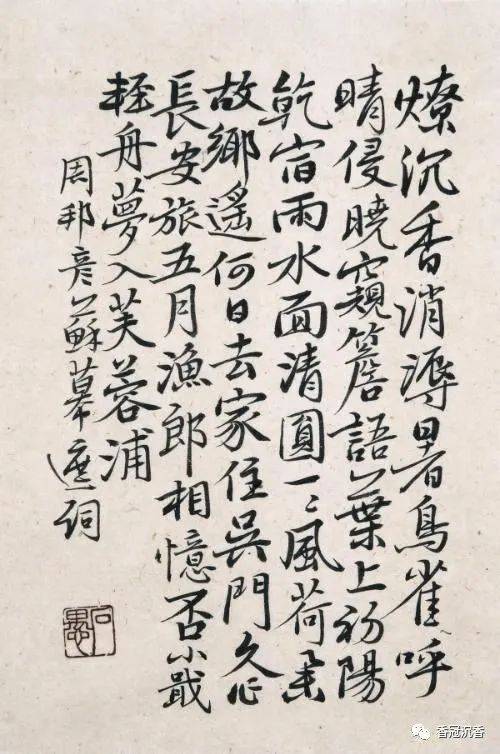 燎沉香消溽暑鳥雀呼
晴侵曉窺簷語葉上初陽
乾宿雨水面清圓一〻風荷舉
故鄉遙何日去家住吳門久作
長安旅五月漁郎相憶否小戢
輕舟夢入芙蓉浦
周邦彥蘇幕遮詞
石愚
香冠沉香